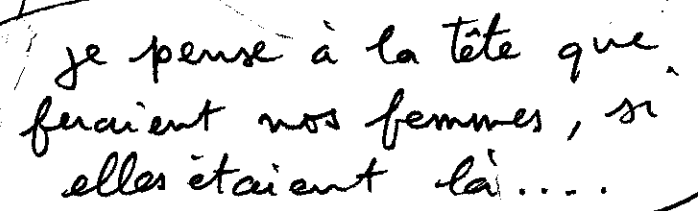 je pense à la tête que
feraient nos femmes, si
elles étaient là....